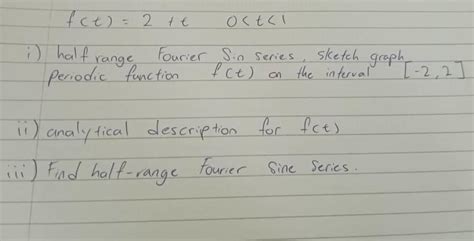 f(t) = 2 + t 0<t<1
i) half range Fourier Sin series, sketch graph
periodic function f(t) on the interval [-2,2]
ii) analytical description for f(t)
iii) Find half-range Fourier Sine Series.